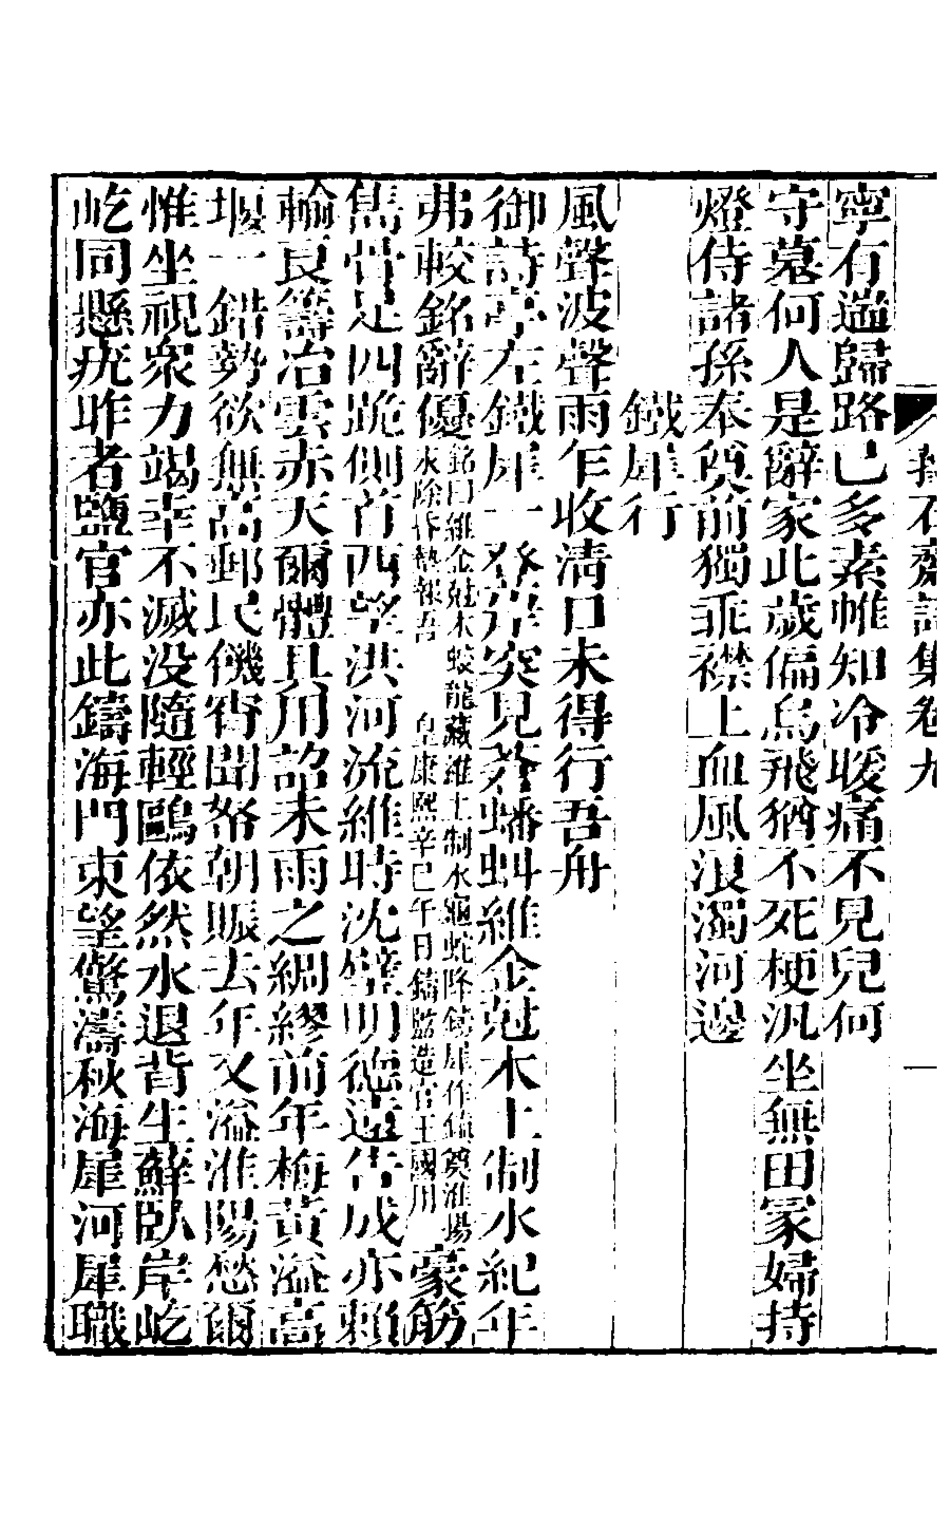 蘀石齋詩集卷九
寧有遄歸路已多素帷知冷暖痛不見兒何
守墓何人是辭家此歲偏烏飛猶不死梗汎坐無田冢婦持
燈侍諸孫奉奠前獨乖襟上血風浪濁河邊
鐵犀行
風聲波聲雨乍收淸口未得行吾舟
御詩亭左鐵犀一登岸突見蒼蟠虯維金尅木土制水紀年
弗較銘辭優銘曰維金尅木蛟龍藏維土制水龜蛇降鑄犀作鎮奠淮揚
水除昏墊報吾 皇康熙辛巳午日鑄監造官王國用豪筋
雋骨足四跪側首西望洪河流維時沈璧明德遠告成亦賴
輸良籌冶雲赤天爾體具用詔未雨之綢繆前年梅黃溢高
堰一錯勢欲無高郵民饑宵聞帑朝賑去年又溢淮陽愁爾
惟坐視衆力竭幸不滅没隨輕鷗依然水退背生蘚臥岸屹
屹同懸疣昨者鹽官亦此鑄海門東望驚濤秋海犀河犀職